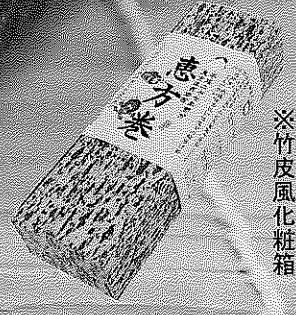 恵方巻
※竹皮風化粧箱